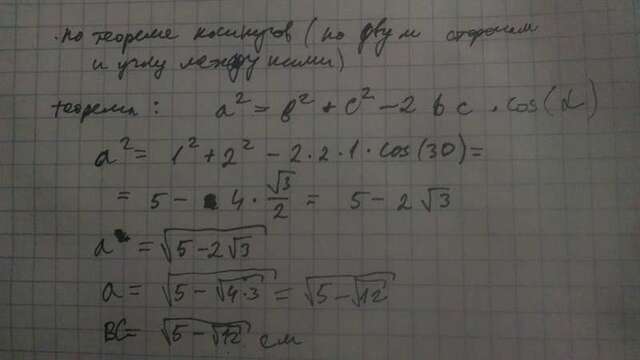 по теореме косинусов (по двум сторонам
и углу между ними)
теорема: a² = b² + c² - 2 b c · cos(α)
a² = 1² + 2² - 2·2·1·cos(30) =
= 5 - 4 · √3/2 = 5 - 2√3
a = √(5-2√3)
a = √(5-√(4·3)) = √(5-√12)
BC = √(5-√12) см